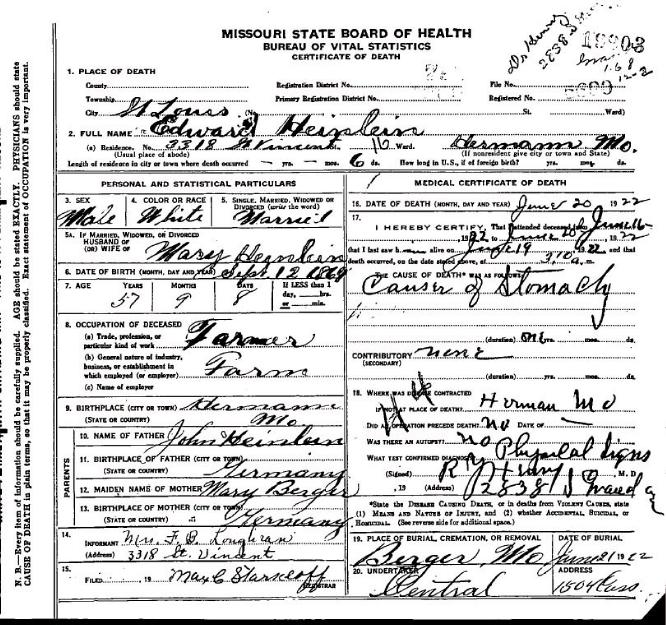 Dr Henry
2838 S
19903
MISSOURI STATE BOARD OF HEALTH
BUREAU OF VITAL STATISTICS
CERTIFICATE OF DEATH
1. PLACE OF DEATH
County
Registration District No.
File No.
Township
Primary Registration District No.
Registered No.
City St Louis (No. St. Ward)
2. FULL NAME Edward Heinlein
(a) Residence. No. 3318 St Vincent 16 Ward. Hermann Mo.
(Usual place of abode) (If nonresident give city or town and State)
Length of residence in city or town where death occurred — yrs. — mos. 6 ds. How long in U.S., if of foreign birth? yrs. mos. ds.
PERSONAL AND STATISTICAL PARTICULARS
3. SEX 4. COLOR OR RACE 5. SINGLE, MARRIED, WIDOWED OR DIVORCED (write the word)
Male White Married
5A. IF MARRIED, WIDOWED, OR DIVORCED
HUSBAND OF
(OR) WIFE OF Mary Heinlein
6. DATE OF BIRTH (MONTH, DAY AND YEAR) Sept 12
7. AGE YEARS MONTHS DAYS If LESS than 1
day, hrs.
or min.
57 9 8
8. OCCUPATION OF DECEASED
(a) Trade, profession, or
particular kind of work Farmer
(b) General nature of industry,
business, or establishment in
which employed (or employer) Farm
(c) Name of employer
9. BIRTHPLACE (CITY OR TOWN) Hermann
(STATE OR COUNTRY) Mo.
PARENTS
10. NAME OF FATHER John Heinlein
11. BIRTHPLACE OF FATHER (CITY OR TOWN)
(STATE OR COUNTRY) Germany
12. MAIDEN NAME OF MOTHER Mary Berger
13. BIRTHPLACE OF MOTHER (CITY OR TOWN)
(STATE OR COUNTRY) Germany
14.
INFORMANT Mrs. F. Loughran
(Address) 3318 St. Vincent
15.
FILED , 19 Max C Starkloff
REGISTRAR
MEDICAL CERTIFICATE OF DEATH
16. DATE OF DEATH (MONTH, DAY AND YEAR) June 20 1922
17.
I HEREBY CERTIFY, That I attended deceased from June 16
1922 to June 20 1922
that I last saw h alive on June 19 1922 and that
death occurred, on the date stated above, at m.
THE CAUSE OF DEATH* WAS AS FOLLOWS:
Cancer of Stomach
(duration) one yrs. mos. ds.
CONTRIBUTORY none
(SECONDARY)
(duration) yrs. mos. ds.
18. WHERE WAS DISEASE CONTRACTED
IF NOT AT PLACE OF DEATH? Herman Mo
DID AN OPERATION PRECEDE DEATH? no DATE OF —
WAS THERE AN AUTOPSY? no
WHAT TEST CONFIRMED DIAGNOSIS? Physical signs
(Signed) Henry M. D.
, 19 (Address) 2838 S
*State the DISEASE CAUSING DEATH, or in deaths from VIOLENT CAUSES, state
(1) MEANS AND NATURE OF INJURY, and (2) whether ACCIDENTAL, SUICIDAL, or
HOMICIDAL. (See reverse side for additional space.)
19. PLACE OF BURIAL, CREMATION, OR REMOVAL DATE OF BURIAL
Berger, Mo June 21 1922
20. UNDERTAKER ADDRESS
Central 1504 Cass
N. B.—Every item of information should be carefully supplied. AGE should be stated EXACTLY. PHYSICIANS should state
CAUSE OF DEATH in plain terms, so that it may be properly classified. Exact statement of OCCUPATION is very important.